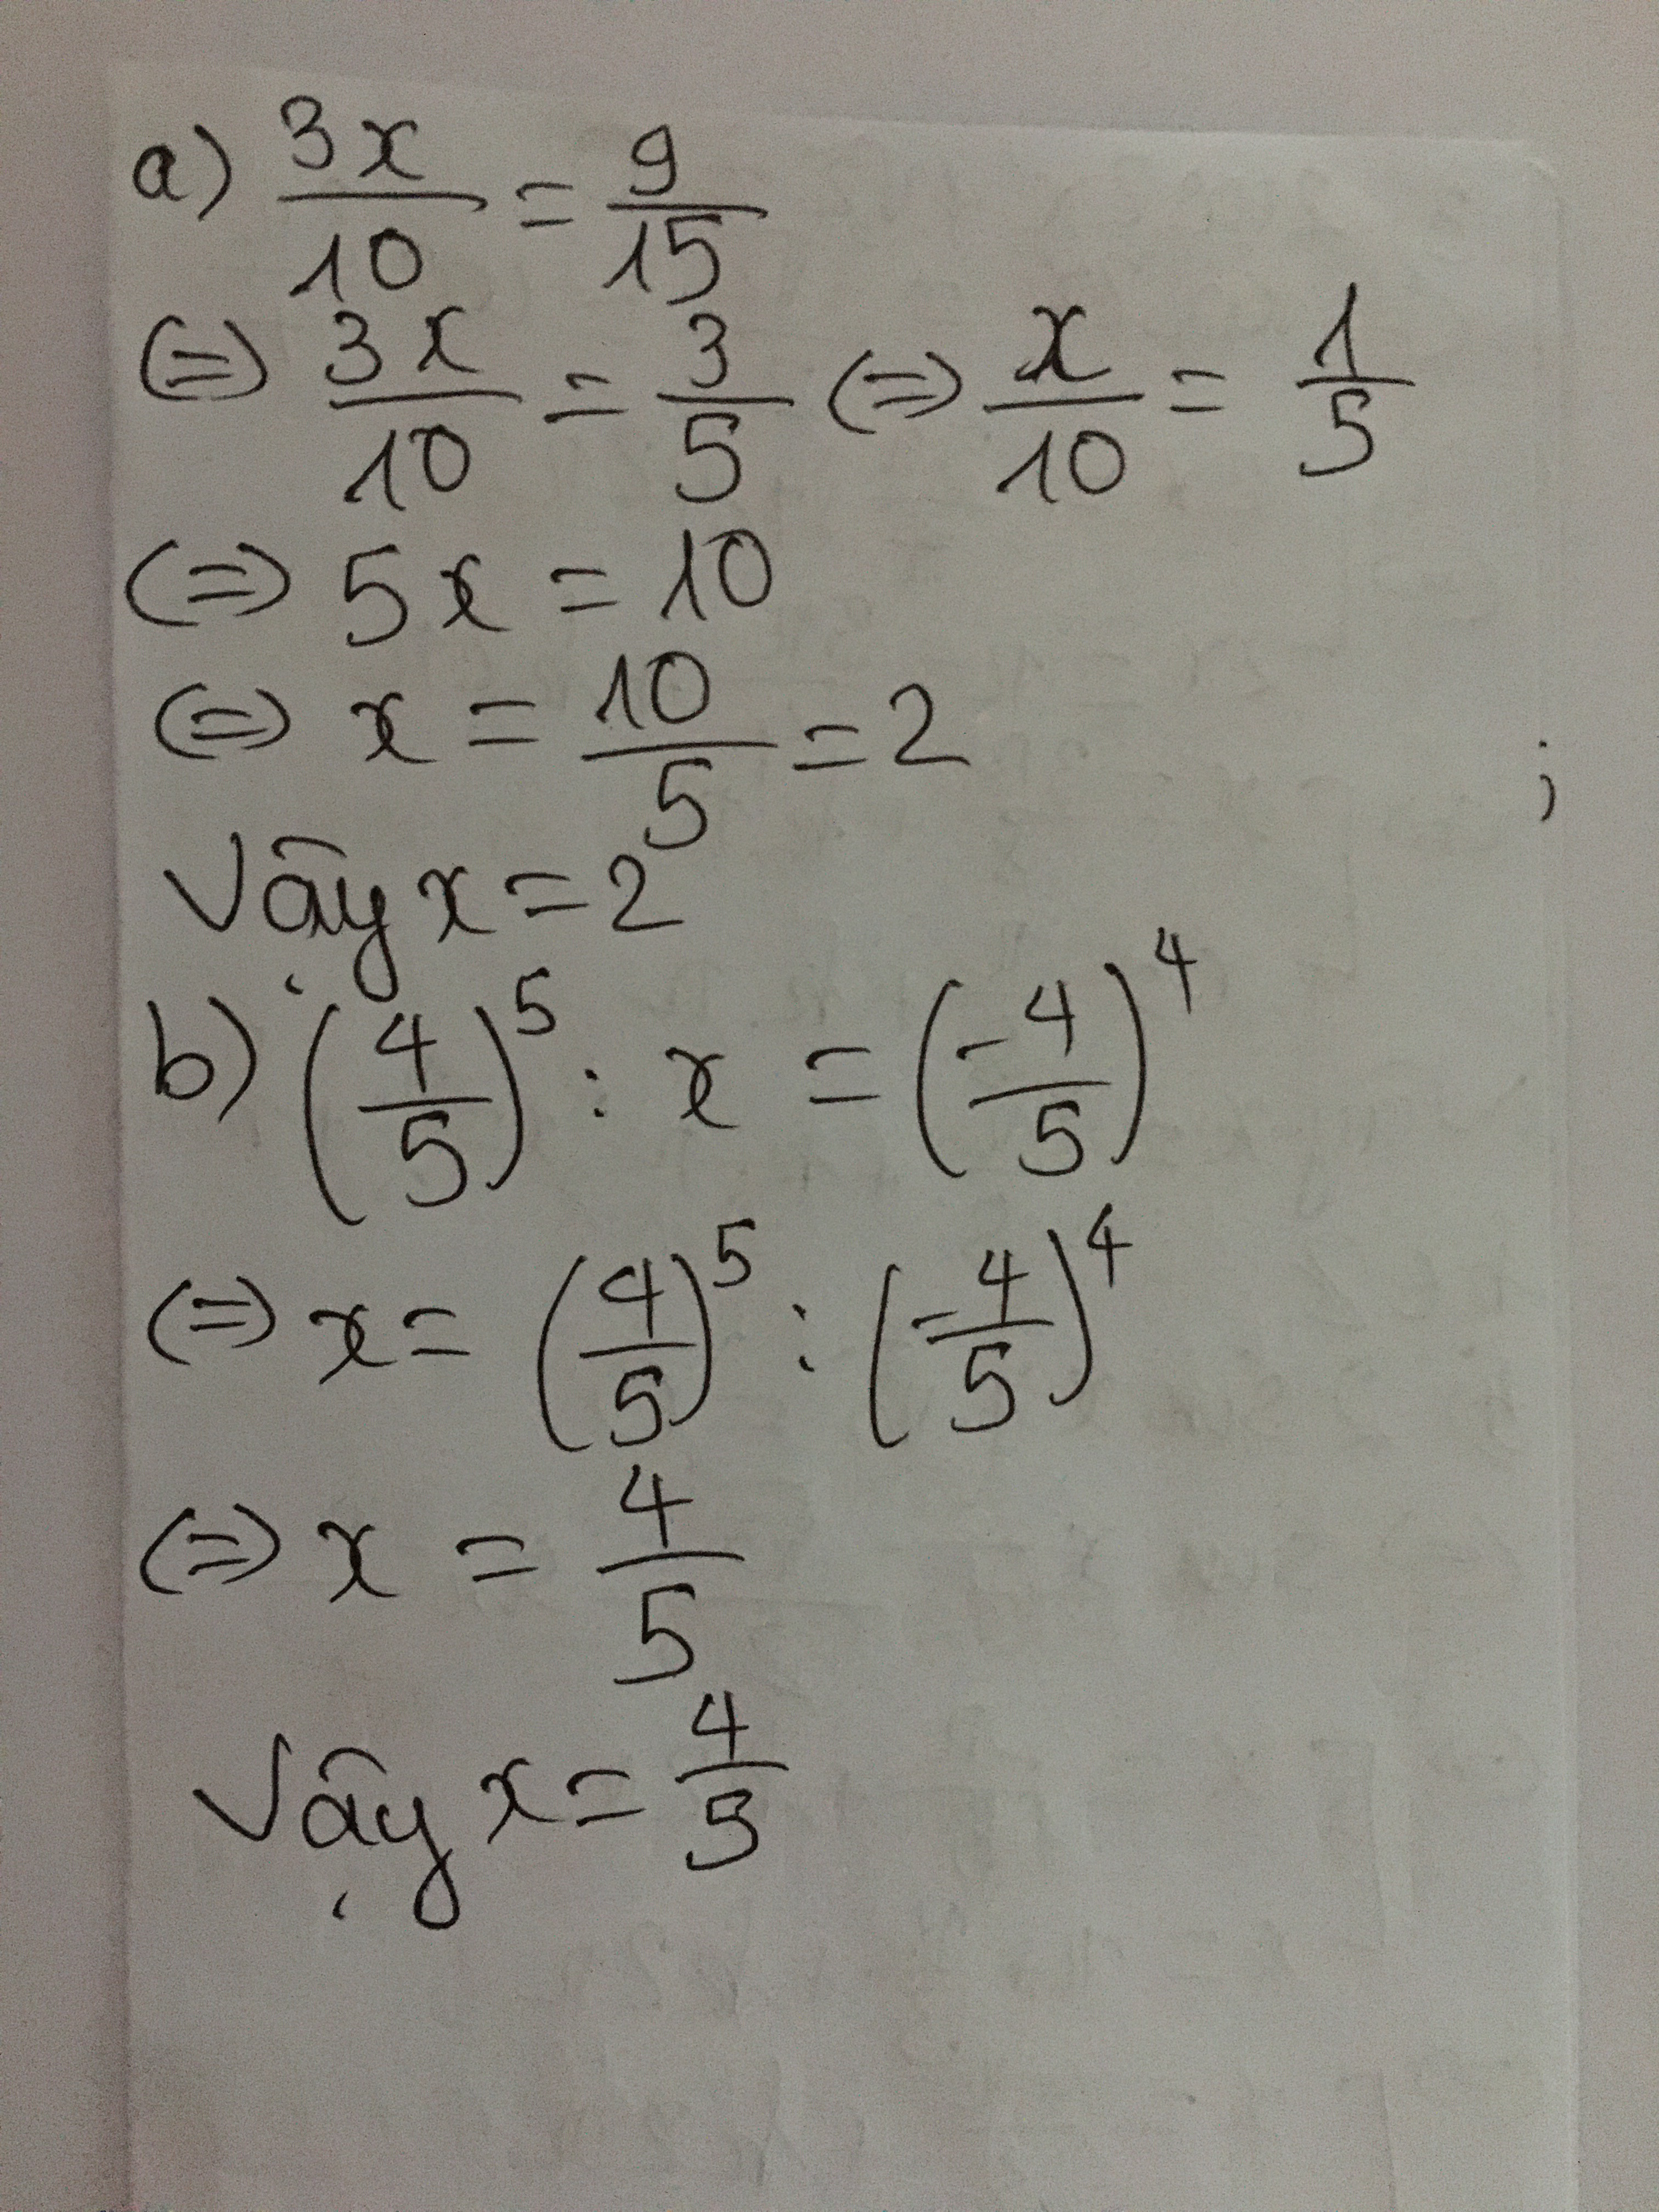 a) 3x/10 = 9/15
(=) 3x/10 = 3/5 (=) x/10 = 1/5
(=) 5x = 10
(=) x = 10/5 = 2
;
Vậy x = 2
b) (4/5)^5 : x = (-4/5)^4
(=) x = (4/5)^5 : (-4/5)^4
(=) x = 4/5
Vậy x = 4/5